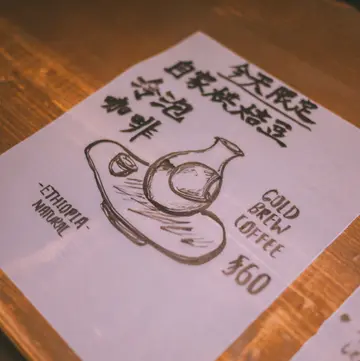 今天限定
自家烘焙豆
冷泡
咖啡
-ETHIOPIA-
NATURAL
COLD
BREW
COFFEE
$60